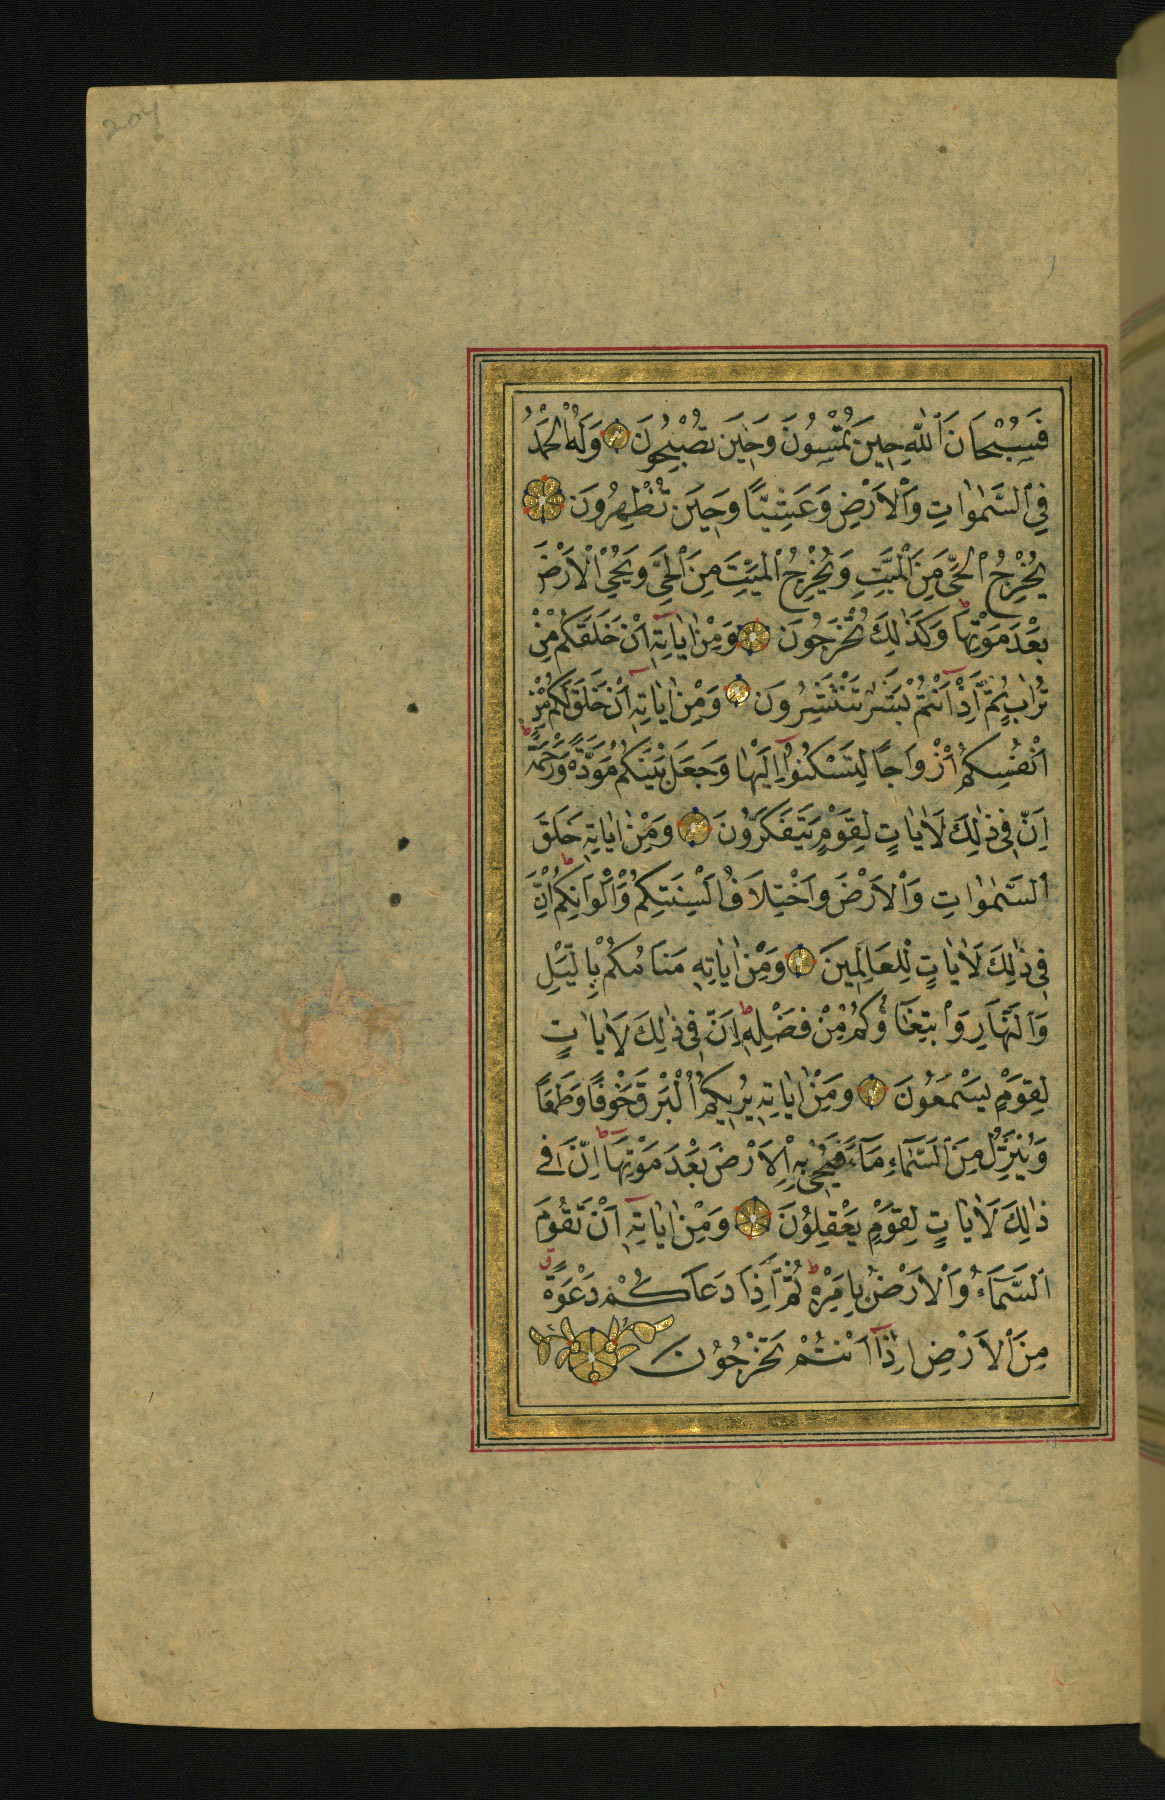 204
فَسُبْحَانَ ٱللّٰهِ حِينَ تُمْسُونَ وَحِينَ تُصْبِحُونَ وَلَهُ ٱلْحَمْدُ
فِي ٱلسَّمٰوَاتِ وَٱلْاَرْضِ وَعَشِيًّا وَحِينَ تُظْهِرُونَ
يُخْرِجُ ٱلْحَيَّ مِنَ ٱلْمَيِّتِ وَيُخْرِجُ ٱلْمَيِّتَ مِنَ ٱلْحَيِّ وَيُحْيِ ٱلْاَرْضَ
بَعْدَ مَوْتِهَا وَكَذٰلِكَ تُخْرَجُونَ وَمِنْ اٰيَاتِهِٓ اَنْ خَلَقَكُمْ مِنْ
تُرَابٍ ثُمَّ اِذَٓا اَنْتُمْ بَشَرٌ تَنْتَشِرُونَ وَمِنْ اٰيَاتِهِٓ اَنْ خَلَقَ لَكُمْ مِنْ
اَنْفُسِكُمْ اَزْوَاجًا لِتَسْكُنُوٓا اِلَيْهَا وَجَعَلَ بَيْنَكُمْ مَوَدَّةً وَرَحْمَةً
اِنَّ فِي ذٰلِكَ لَاٰيَاتٍ لِقَوْمٍ يَتَفَكَّرُونَ وَمِنْ اٰيَاتِهِ خَلْقُ
ٱلسَّمٰوَاتِ وَٱلْاَرْضِ وَاخْتِلَافُ اَلْسِنَتِكُمْ وَاَلْوَانِكُمْ اِنَّ
فِي ذٰلِكَ لَاٰيَاتٍ لِلْعَالِمِينَ وَمِنْ اٰيَاتِهِ مَنَامُكُمْ بِالَّيْلِ
وَٱلنَّهَارِ وَٱبْتِغَٓاؤُكُمْ مِنْ فَضْلِهِ اِنَّ فِي ذٰلِكَ لَاٰيَاتٍ
لِقَوْمٍ يَسْمَعُونَ وَمِنْ اٰيَاتِهِ يُرِيكُمُ ٱلْبَرْقَ خَوْفًا وَطَمَعًا
وَيُنَزِّلُ مِنَ ٱلسَّمَٓاءِ مَٓاءً فَيُحْيِي بِهِ ٱلْاَرْضَ بَعْدَ مَوْتِهَا اِنَّ فِي
ذٰلِكَ لَاٰيَاتٍ لِقَوْمٍ يَعْقِلُونَ وَمِنْ اٰيَاتِهِٓ اَنْ تَقُومَ
ٱلسَّمَٓاءُ وَٱلْاَرْضُ بِاَمْرِهِ ثُمَّ اِذَا دَعَاكُمْ دَعْوَةً
مِنَ ٱلْاَرْضِ اِذَٓا اَنْتُمْ تَخْرُجُونَ